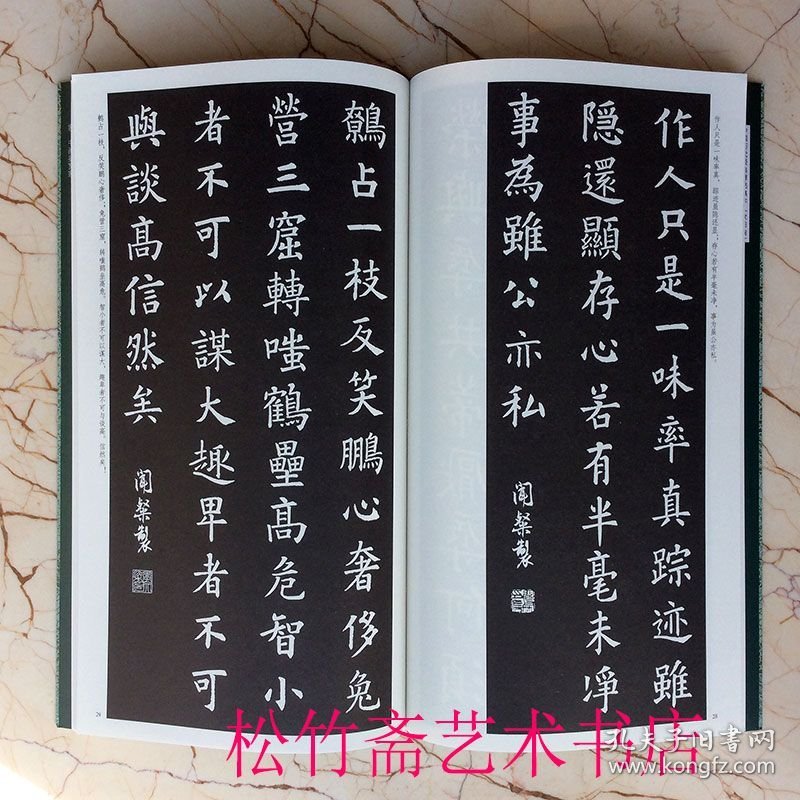 作人只是一味率真踪迹雖
隐還顯存心若有半毫未淨
事為雖公亦私
闻粲製
作人只是一味率真，踪迹虽隐还显；存心若有半毫未净，事为虽公亦私。
28
鷦占一枝反笑鵬心奢侈兔
營三窟轉嗤鶴壘高危智小
者不可以謀大趣卑者不可
與談高信然矣
闻粲製
鹪占一枝，反笑鹏心奢侈；兔营三窟，转嗤鹤垒高危。智小者不可以谋大，趣卑者不可与谈高。信然矣！
松竹斋艺术书店
孔夫子旧书网
www.kongfz.com